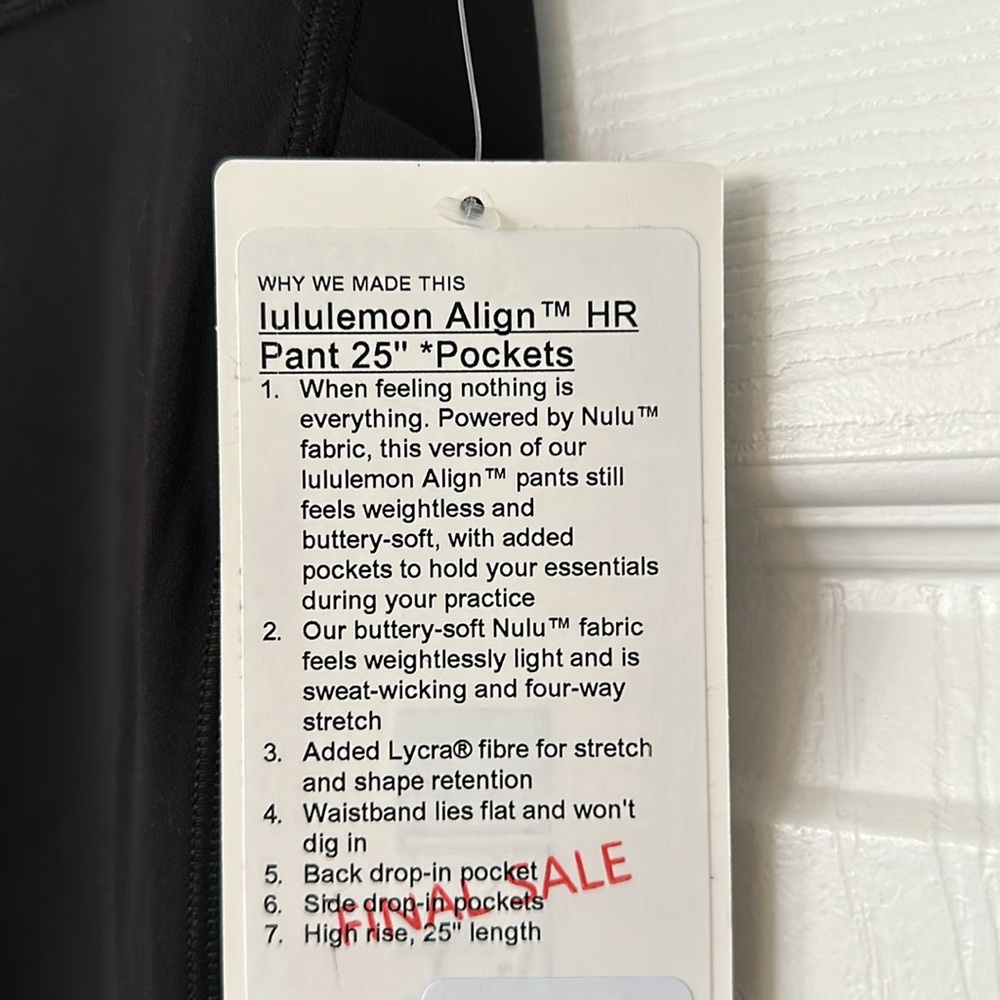 WHY WE MADE THIS
lululemon Align™ HR
Pant 25" *Pockets
1. When feeling nothing is
everything. Powered by Nulu™
fabric, this version of our
lululemon Align™ pants still
feels weightless and
buttery-soft, with added
pockets to hold your essentials
during your practice
2. Our buttery-soft Nulu™ fabric
feels weightlessly light and is
sweat-wicking and four-way
stretch
3. Added Lycra® fibre for stretch
and shape retention
4. Waistband lies flat and won't
dig in
5. Back drop-in pocket
6. Side drop-in pockets
7. High rise, 25" length
FINAL SALE